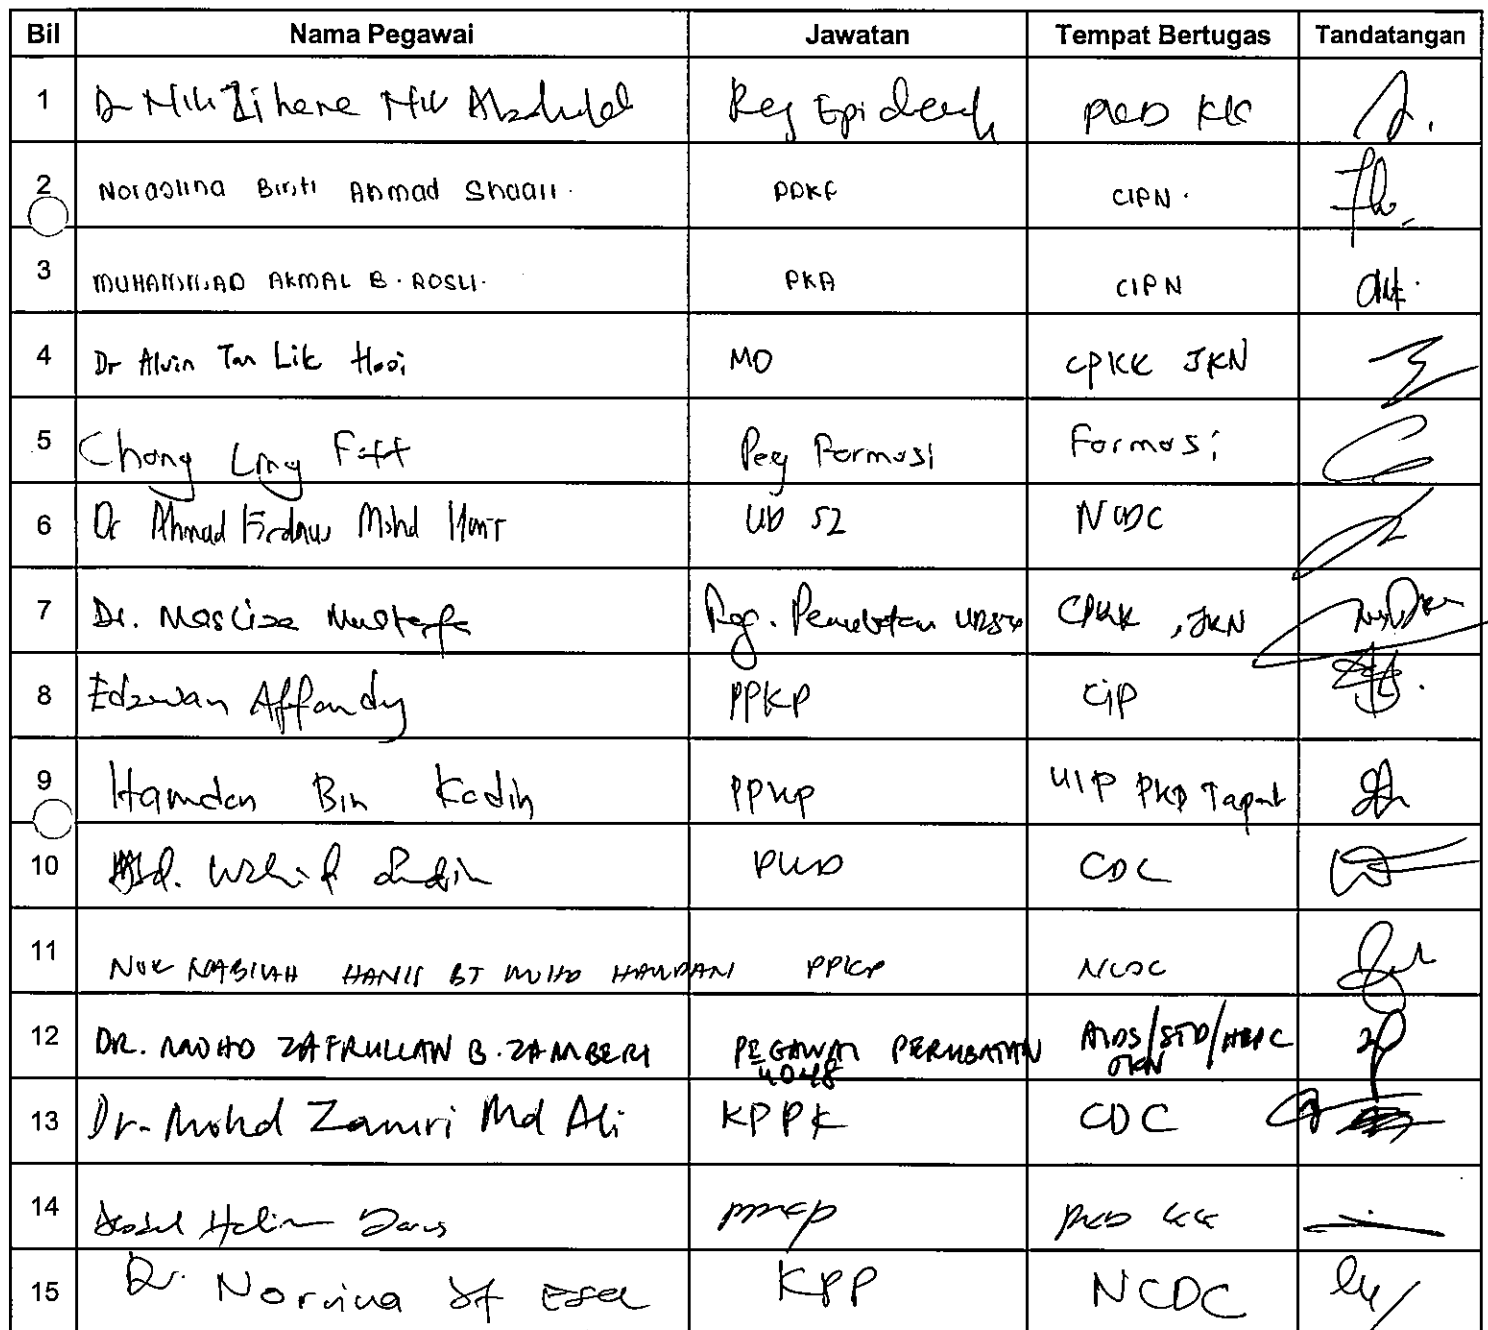 Bil Nama Pegawai Jawatan Tempat Bertugas Tandatangan
1 Peg Epid PKD KK
2 Noraslina Binti Ahmad Shaari. PPKP CIPN.
3 MUHAMMAD AKMAL B. ROSLI. PKA CIPN
4 Dr Alvin Tan Lik Hooi MO CPKK JKN
5 Chong Ling Fatt Peg Farmasi Farmasi
6 Dr Ahmad Firdaus Mohd UD 52 NCDC
7 Dr. Masliza Mustafa Peg. Perubatan UD54 CPKK, JKN
8 Edzwan Affandy PPKP CIP
9 Hamdan Bin Kadih PPKP UIP PKD
10 CDC
11 NUR NABILAH HANIS BT MOHD HAMDANI PPKP NCDC
12 DR. MOHD ZAFRULLAN B. ZAMBERI PEGAWAI PERUBATAN AIDS/STD/HEPC
UD48 JKN
13 Dr. Mohd Zamri Md Ali KPPK CDC
14 Abdul Halim PPKP PKD KK
15 Dr. KPP NCDC